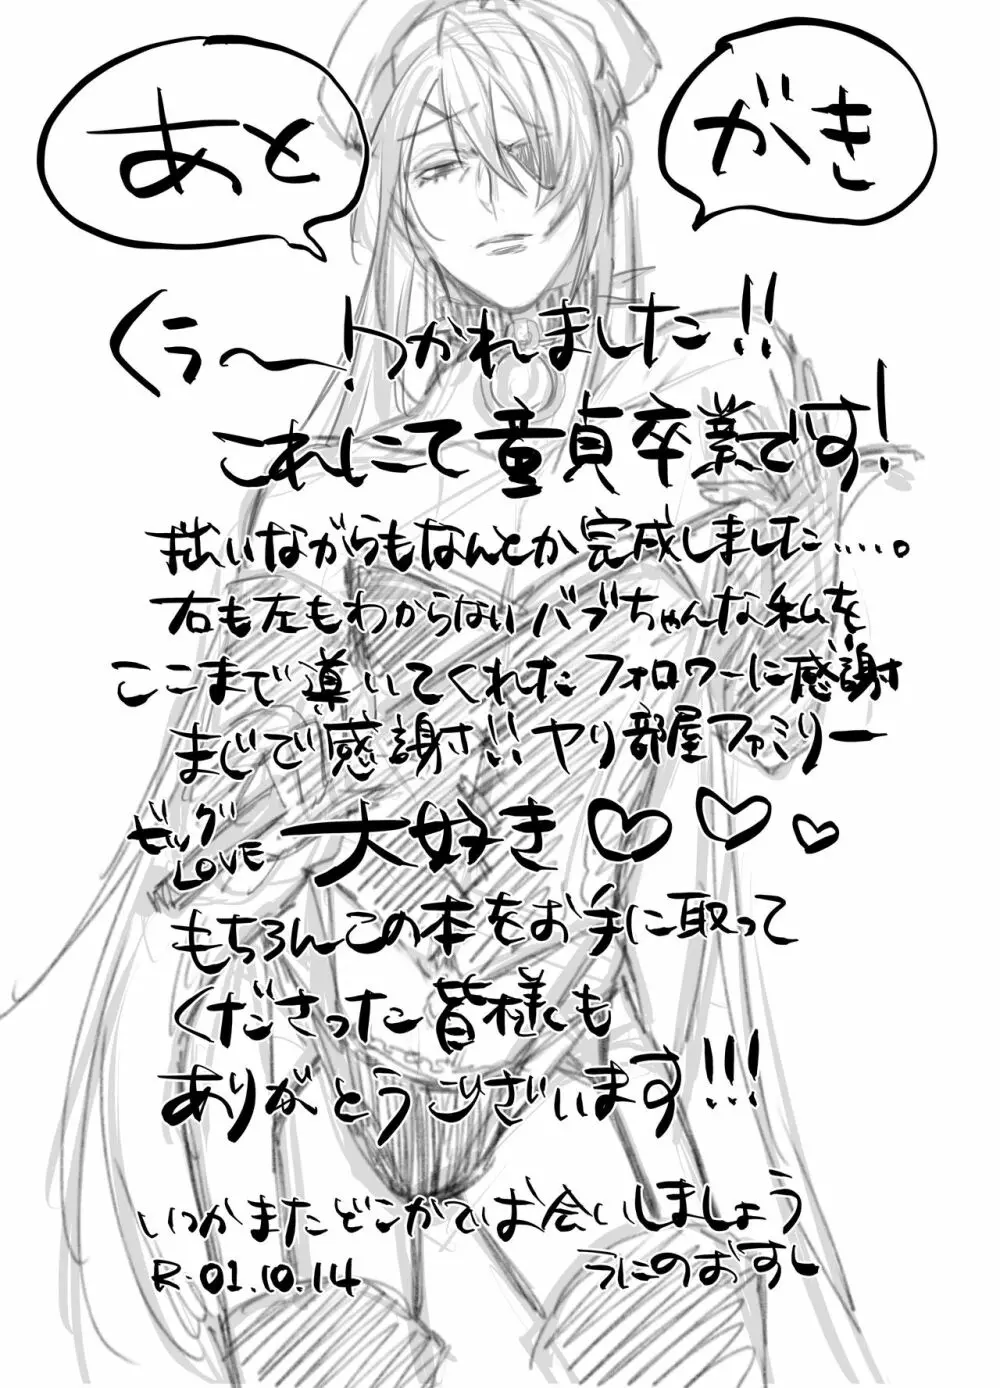 あとがき
くぅ〜!つかれました!!
これにて童貞卒業です!
拙いながらもなんとか完成しました.....。
右も左もわからないバブちゃんな私を
ここまで導いてくれたフォロワーに感謝
まじで感謝!!ヤリ部屋ファミリー
ビッグLOVE 大好き♡♡♡
もちろんこの本をお手に取って
くださった皆様も
ありがとうございます!!!
いつかまたどこかでお会いしましょう
R.01.10.14 うにのおすし